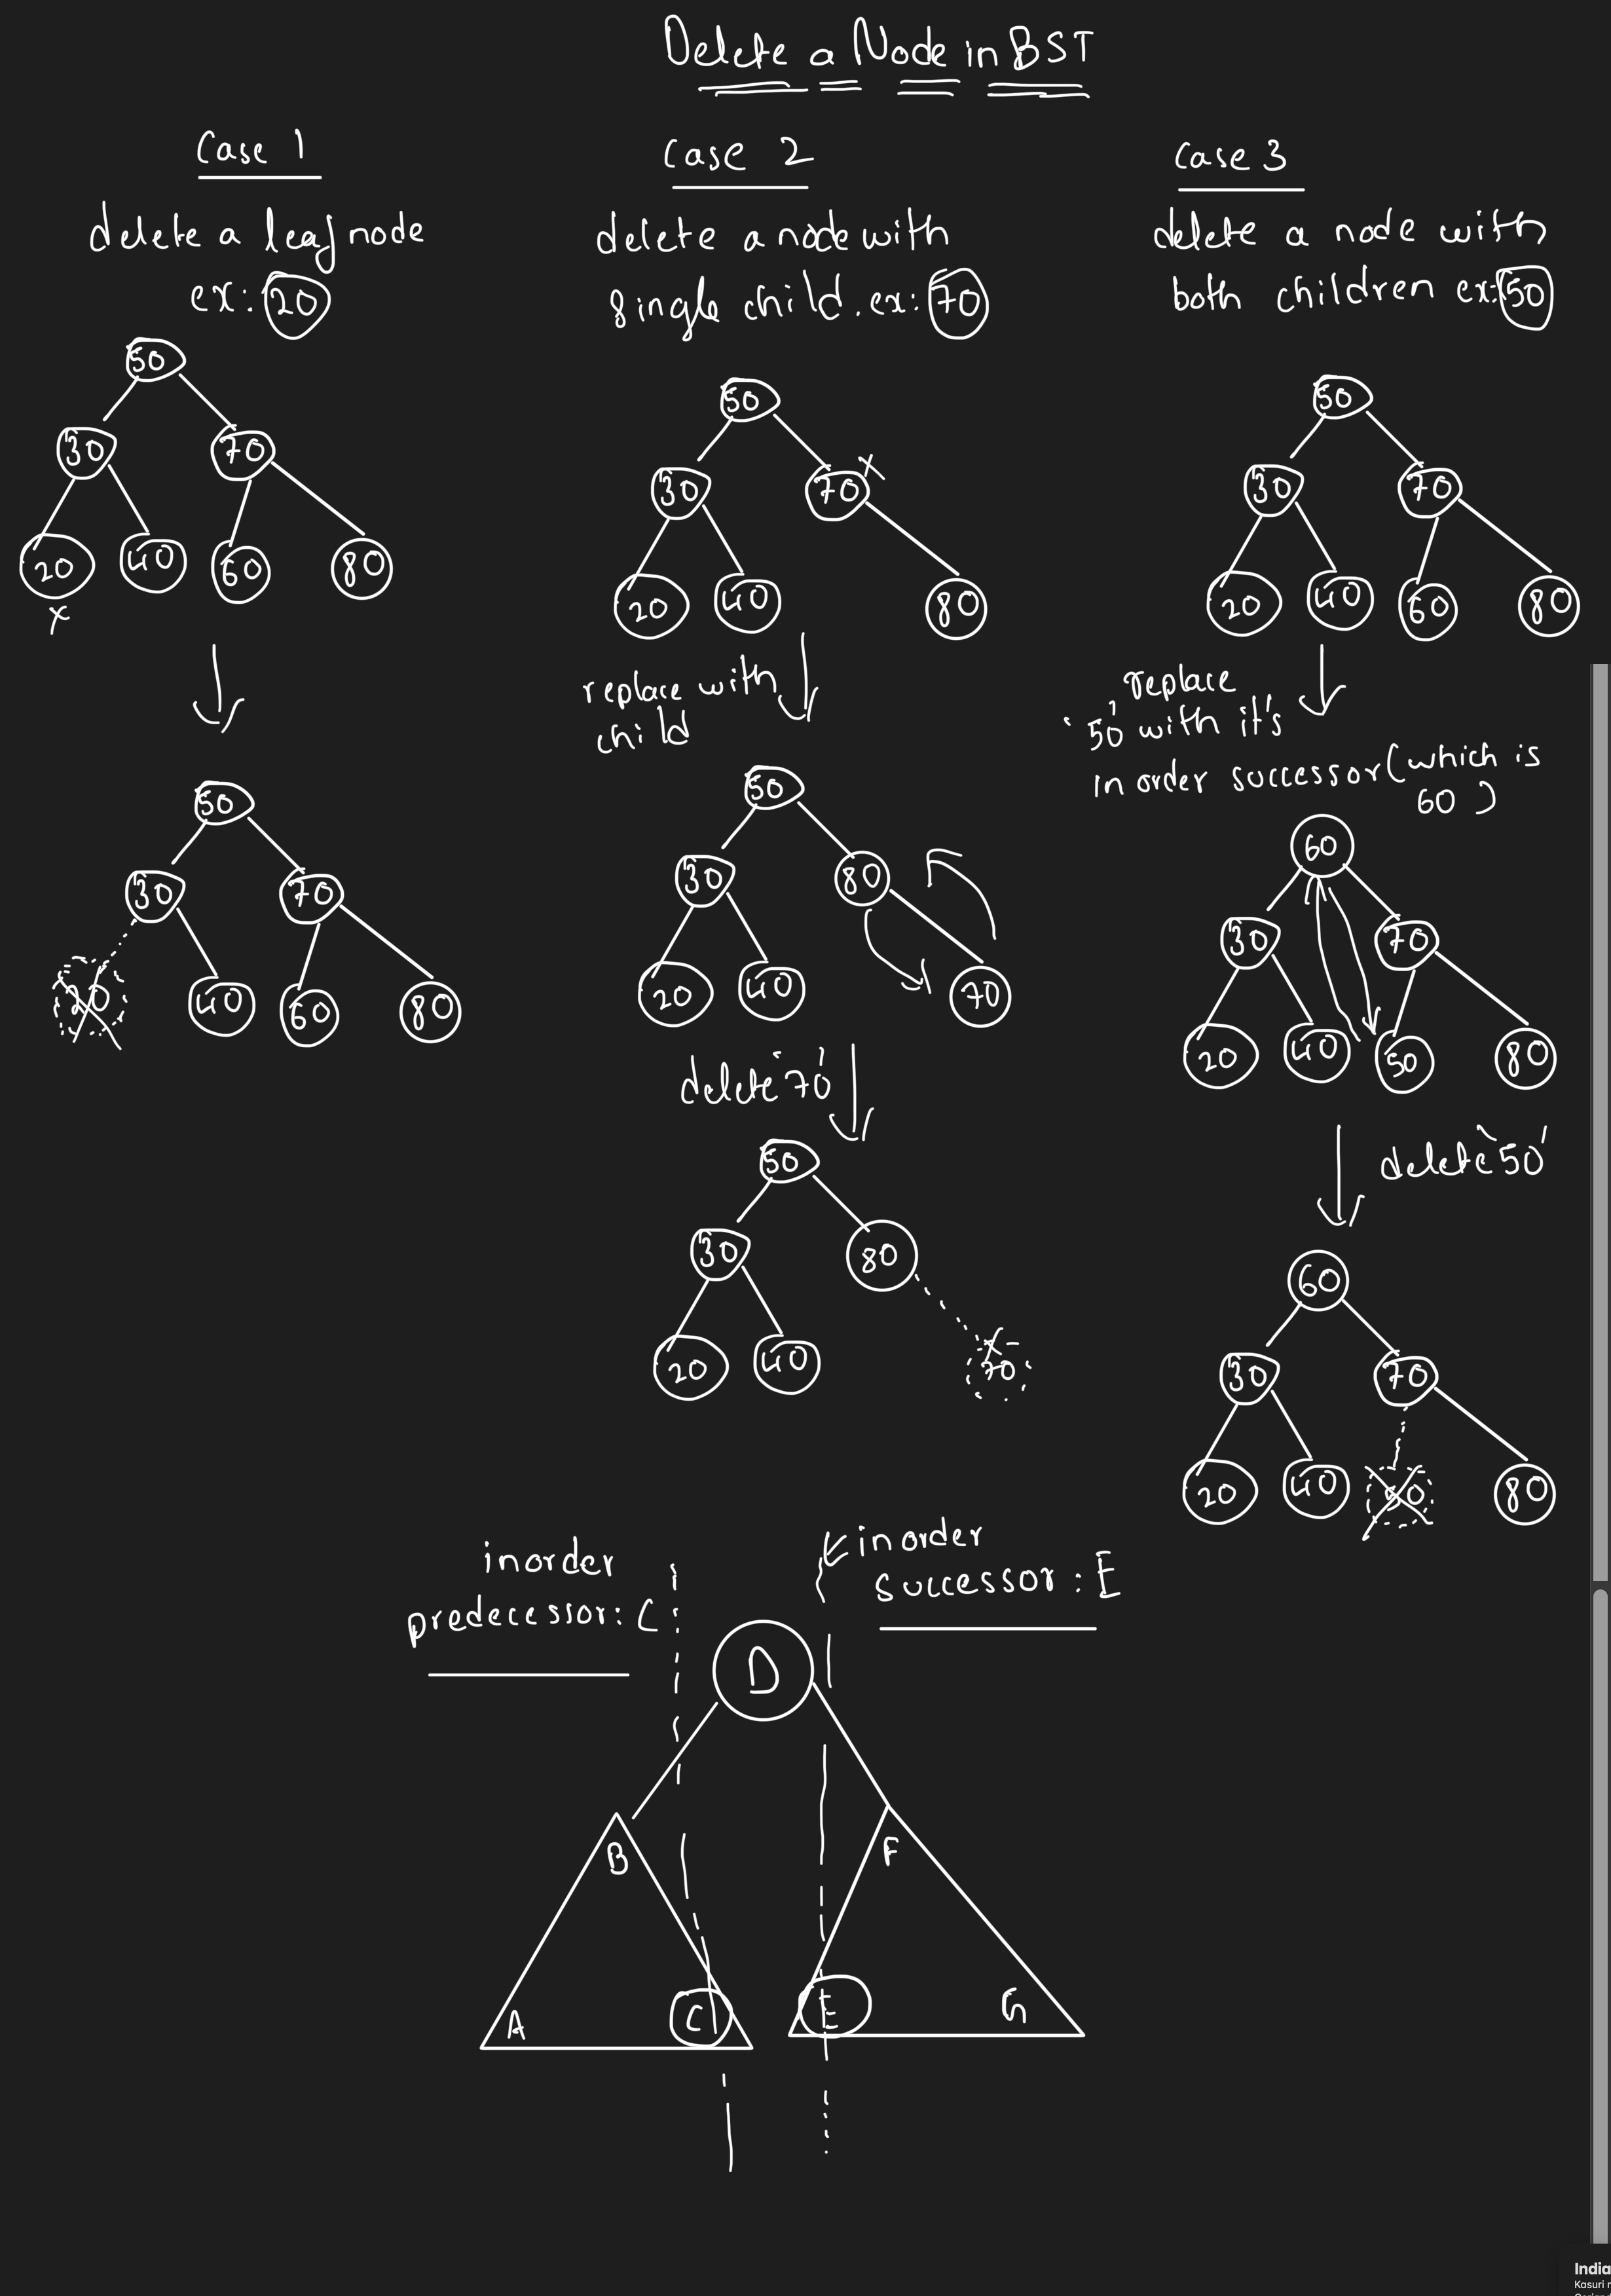 Delete a Node in BST
Case 1
delete a leaf node
ex: 20
50
30 70
20 40 60 80
x
50
30 70
20 40 60 80
Case 2
delete a node with
single child. ex: 70
50
30 70 x
20 40 80
replace with
child
50
30 80
20 40 70
delete '70'
50
30 80
20 40 70
Case 3
delete a node with
both children ex: 50
50
30 70
20 40 60 80
replace
'50' with it's
inorder successor (which is
60)
60
30 70
20 40 50 80
delete '50'
60
30 70
20 40 50 80
inorder
predecessor: C
inorder
successor: E
D
B F
A C E G
India
Kasuri